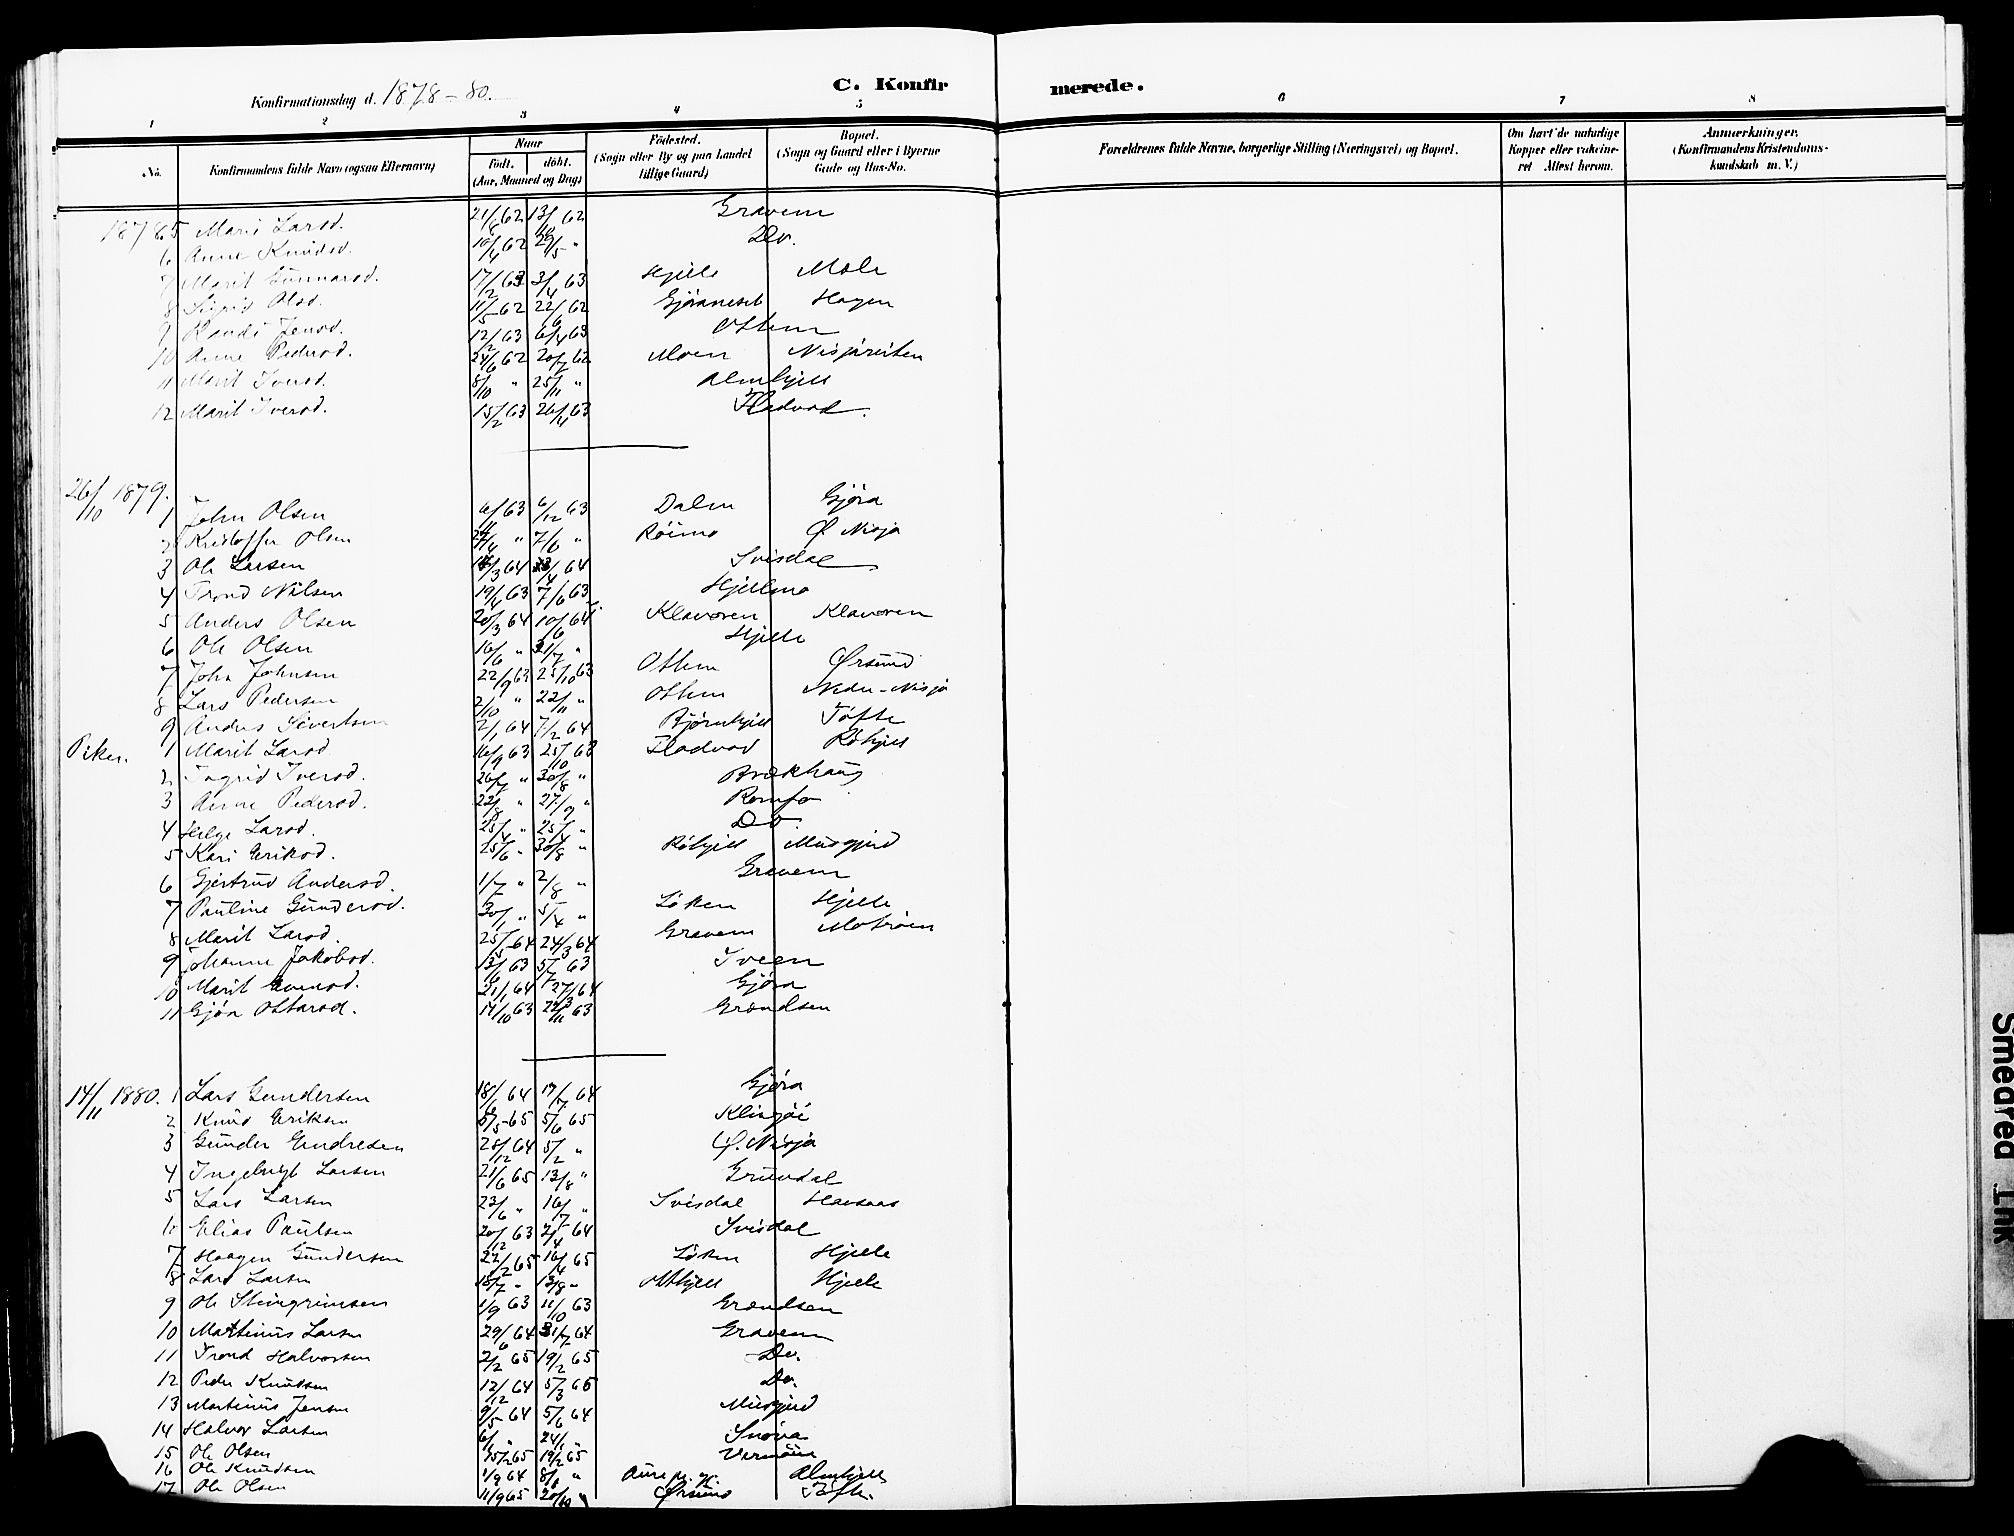 Konfirmationsdag d. 1878-80.
C. Konfirmerede.
1 2 3 4 5 6 7 8
No.
Konfirmandens fulde Navn (ogsaa Efternavn)
Naar
født. døbt.
(Aar, Maaned og Dag)
Fødested.
(Sogn eller By og paa Landet tillige Gaard)
Bopæl.
(Sogn og Gaard eller i Byerne Gade og Hus-No.
Forældrenes fulde Navne, borgerlige Stilling (Næringsvei) og Bopæl.
Om havt de naturlige Kopper eller vakcineret Attest herom.
Anmærkninger.
(Konfirmandens Kristendomskundskab m. V.)
1878. 5 Marit Larsd. 21/8 62 13/10 62 Gravem
6 Anne Knudsd. 10/4 62 29/5 " Do.
7 Marit Gunnarsd. 17/2 63 3/4 63 Hjelle Mæle
8 Sigrid Olsd. 11/5 62 22/6 62 Gjøraneset Hagen
9 Randi Jensd. 12/2 63 6/4 63 Ottem
10 Anne Pedersd. 24/6 62 20/7 62 Moen Nisjareiten
11 Marit Iversd. 8/10 " 25/11 " Almskjell
12 Marit Iversd. 15/2 63 26/4 63 Fladvad
26/10 1879.
1 John Olsen 6/11 63 6/12 63 Dalen Gjøra
2 Kristoffer Olsen 24/4 " 7/6 " Røimo Ø Nisja
3 Ole Larsen /3 64 /4 64 Svisdal
4 Trond Nilsen 19/4 63 7/6 63 Hjellmo
5 Anders Olsen 20/3 64 10/6 64 Klavoren Klavoren
6 Ole Olsen 16/6 " 31/7 " Hjelle
7 John Johnsen 22/9 63 25/10 63 Ottem Ørsund
8 Lars Pedersen 2/10 " 22/11 " Ottem Nedre-Nisja
9 Anders Sivertsen 2/1 64 7/2 64 Bjørnhjell Tofte
Piker. 1 Marit Larsd 16/9 63 25/10 63 Fladvad Røhjell
2 Ingrid Iversd. 26/7 " 30/8 " Brækhaug
3 Anne Pedersd. 22/8 " 27/9 " Romfo
4 Helge Larsd. 25/4 " 25/4 " Do
5 Kari Eriksd. 25/6 " 30/8 " Røhjell Musgjerd
6 Gjertrud Andersd. 1/7 " 2/8 " Gravem
7 Pauline Gundersd. 30/1 " 5/4 " Løken Hjelle
8 Marit Larsd. 25/1 64 24/3 64 Gravem Mostrøen
9 Johanne Jakobsd. 13/6 63 5/7 63 Iveen
10 Marit Evensd. 21/1 64 27/3 64 Gjøra
11 Gjøa Ottarsd. 14/10 63 22/11 63 Grændsen
14/11 1880. 1 Lars Gundersen 18/6 64 17/7 64 Gjøra
2 Knud Eriksen 8/5 65 5/6 65 Klingøi
3 Gunder Endresen 25/12 64 5/2 " Ø. Nisja
4 Ingebrigt Larsen 21/6 65 13/8 " Grøvdal
5 Lars Larsen 23/6 " 16/7 " Svisdal Haasaas
6 Elias Paulsen 20/12 63 2/4 64 Svisdal
7 Haagen Gundersen 22/2 65 16/4 65 Løken Hjelle
8 Lars Larsen 15/7 " 13/8 " Ottkjell Hjelle
9 Ole Steingrimsen 1/9 63 11/10 63 Grændsen
10 Martinus Larsen 29/6 64 31/7 64 Gravem
11 Trond Halvorsen 2/2 65 19/2 65 Do.
12 Peder Knudsen 12/12 64 5/3 65 Do.
13 Martinus Jensen 9/5 64 5/6 64 Musgjerd
14 Halvor Larsen 6/ " 24/ " Snøva
15 Ole Olsen 15/2 65 19/2 65 Vermøien
16 Ole Knudsen 1/9 64 8/ " Aure pr. gj. Almskjell
17 Ole Olsen 11/9 65 20/10 " Ørsund Tofte.
Smeared Ink